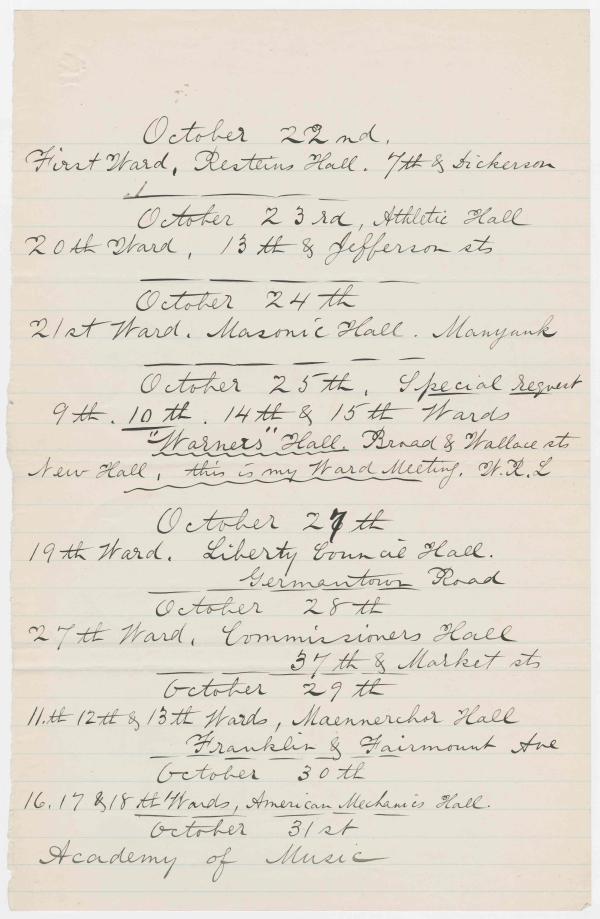 October 22nd.
First Ward, Resteins Hall. 7th & Dickerson
October 23rd, Athletic Hall
20th Ward, 13th & Jefferson sts
October 24th
21st Ward. Masonic Hall. Manyunk
October 25th. Special request
9th. 10th. 14th & 15th Wards
"Warners" Hall. Broad & Wallace sts
New Hall, this is my Ward Meeting. W.R.L
October 27th
19th Ward. Liberty Council Hall.
Germantown Road
October 28th
27th Ward, Commissioners Hall
37th & Market sts
October 29th
11.th 12th & 13th Wards, Maennerchor Hall
Franklin & Fairmount Ave
October 30th
16. 17 & 18th Wards, American Mechanics Hall.
October 31st
Academy of Music